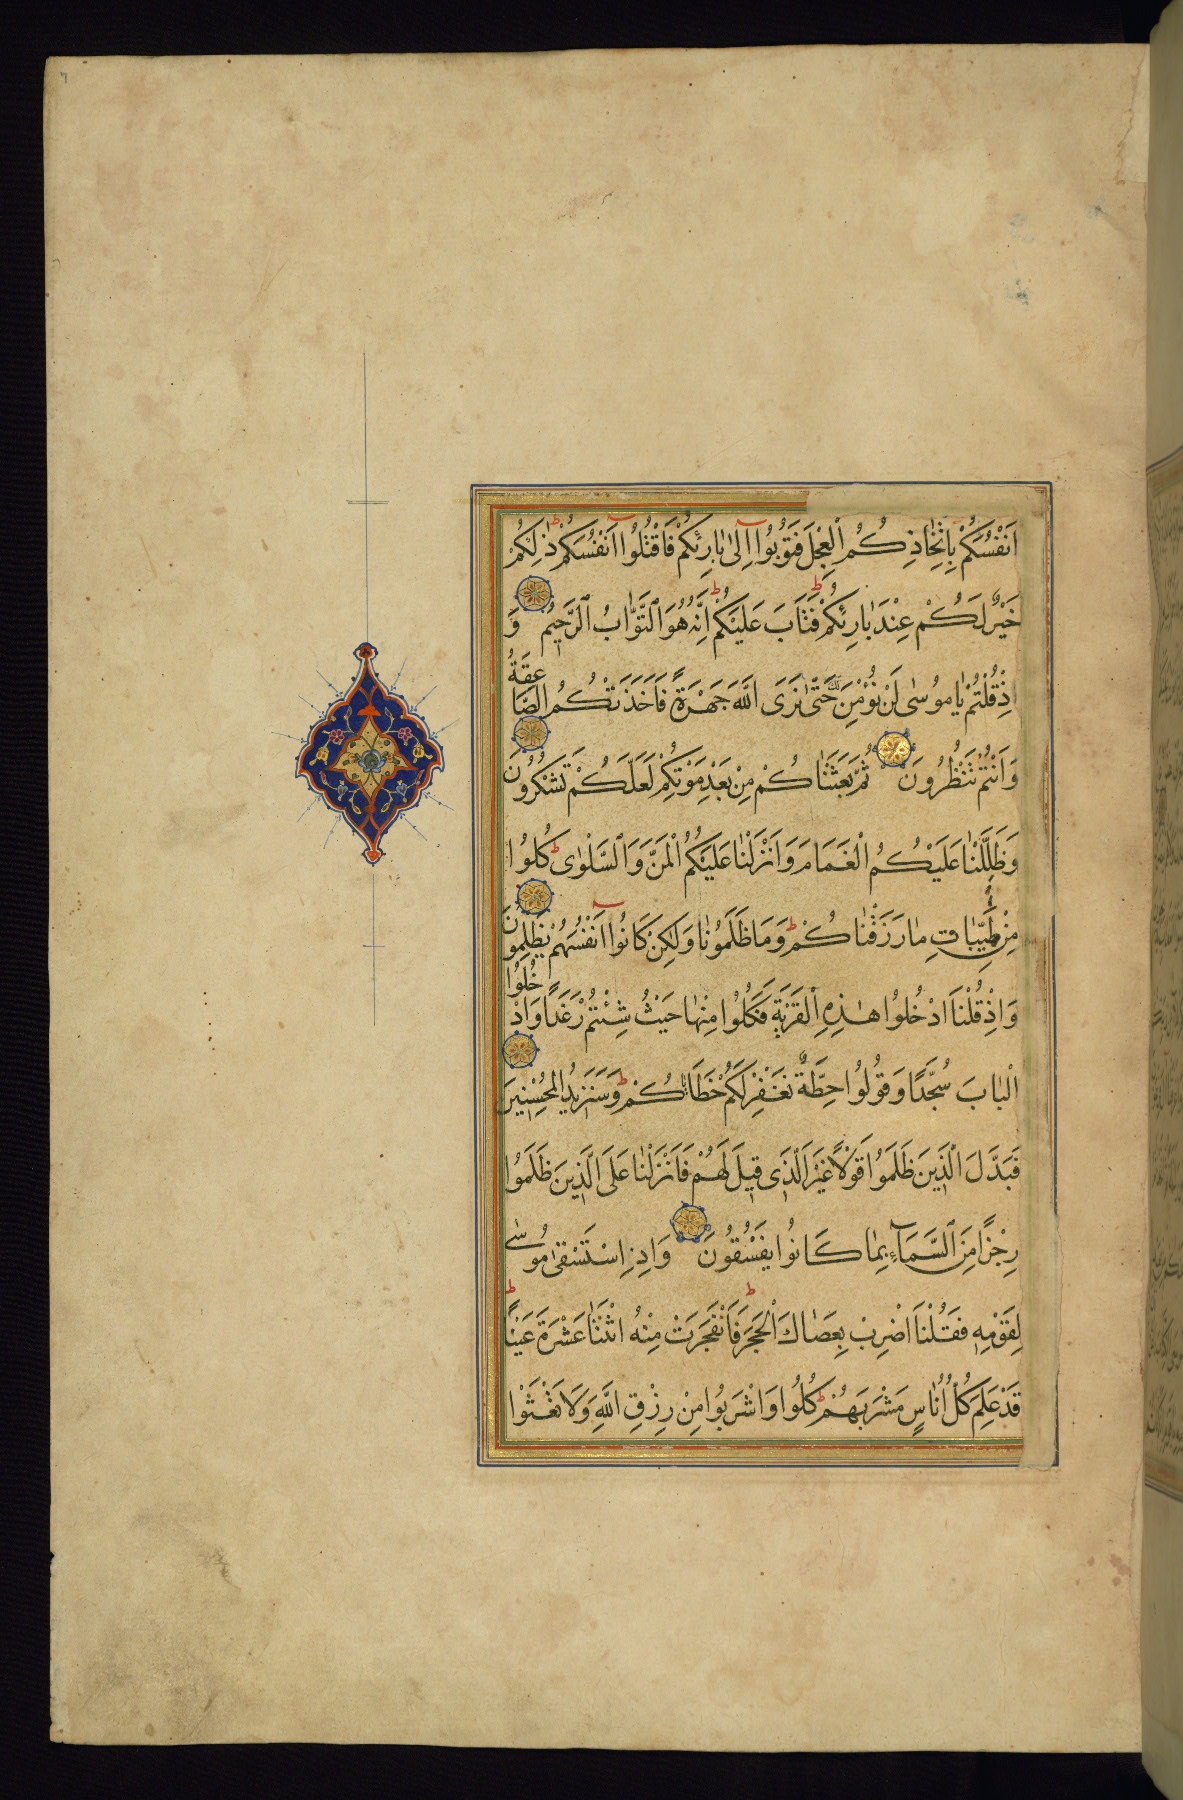 اَنْفُسَكُمْ بِاتِّخَاذِكُمُ الْعِجْلَ فَتُوبُوا اِلٰى بَارِئِكُمْ فَاقْتُلُوا اَنْفُسَكُمْ ذٰلِكُمْ
خَيْرٌ لَكُمْ عِنْدَ بَارِئِكُمْ فَتَابَ عَلَيْكُمْ اِنَّهُ هُوَ التَّوَّابُ الرَّحِيمُ وَ
اِذْ قُلْتُمْ يَا مُوسٰى لَنْ نُؤْمِنَ لَكَ حَتّٰى نَرَى اللّٰهَ جَهْرَةً فَاَخَذَتْكُمُ الصَّاعِقَةُ
وَاَنْتُمْ تَنْظُرُونَ ثُمَّ بَعَثْنَاكُمْ مِنْ بَعْدِ مَوْتِكُمْ لَعَلَّكُمْ تَشْكُرُونَ
وَظَلَّلْنَا عَلَيْكُمُ الْغَمَامَ وَاَنْزَلْنَا عَلَيْكُمُ الْمَنَّ وَالسَّلْوٰى كُلُوا
مِنْ طَيِّبَاتِ مَا رَزَقْنَاكُمْ وَمَا ظَلَمُونَا وَلٰكِنْ كَانُوا اَنْفُسَهُمْ يَظْلِمُونَ
وَاِذْ قُلْنَا ادْخُلُوا هٰذِهِ الْقَرْيَةَ فَكُلُوا مِنْهَا حَيْثُ شِئْتُمْ رَغَدًا وَادْخُلُوا
الْبَابَ سُجَّدًا وَقُولُوا حِطَّةٌ نَغْفِرْ لَكُمْ خَطَايَاكُمْ وَسَنَزِيدُ الْمُحْسِنِينَ
فَبَدَّلَ الَّذِينَ ظَلَمُوا قَوْلًا غَيْرَ الَّذِى قِيلَ لَهُمْ فَاَنْزَلْنَا عَلَى الَّذِينَ ظَلَمُوا
رِجْزًا مِنَ السَّمَآءِ بِمَا كَانُوا يَفْسُقُونَ وَاِذِ اسْتَسْقٰى مُوسٰى
لِقَوْمِهِ فَقُلْنَا اضْرِبْ بِعَصَاكَ الْحَجَرَ فَانْفَجَرَتْ مِنْهُ اثْنَتَا عَشْرَةَ عَيْنًا
قَدْ عَلِمَ كُلُّ اُنَاسٍ مَشْرَبَهُمْ كُلُوا وَاشْرَبُوا مِنْ رِزْقِ اللّٰهِ وَلَا تَعْثَوْا